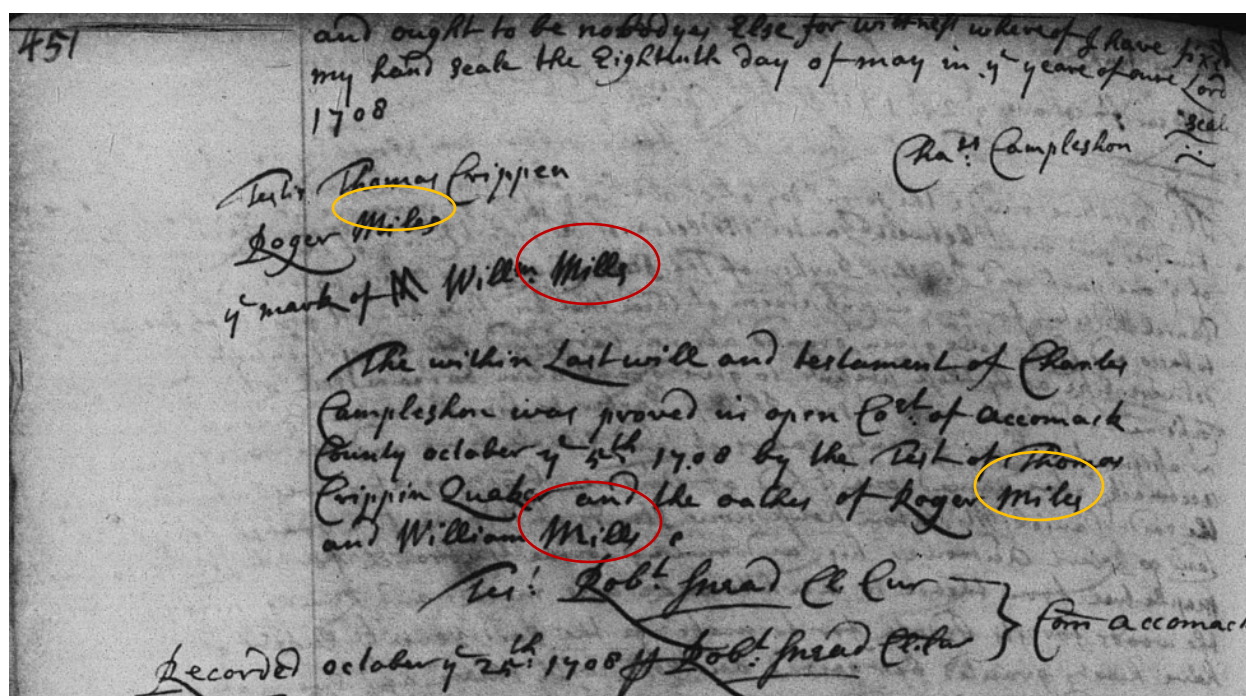 451
and ought to be nobodyes Else for wittness whereof I have fixd
my hand seale the Eighteth day of may in yᵉ yeare of oure Lord
1708
Chaˢ Campleshon seale
Testis Thomas Crippen
Roger Miles
yᵉ mark of M Willᵐ Mills
The within Last will and testament of Charles
Campleshon was proved in open Coʳᵗ of accomack
County october yᵉ 5ᵗʰ 1708 by the Test of Thomas
Crippin Quaker and the oathes of Roger Miles
and William Mills
Tesᵗ Robᵗ Snead Cl Cur
Com accomack
Recorded october yᵉ 25ᵗʰ 1708 Robᵗ Snead Cl Cur